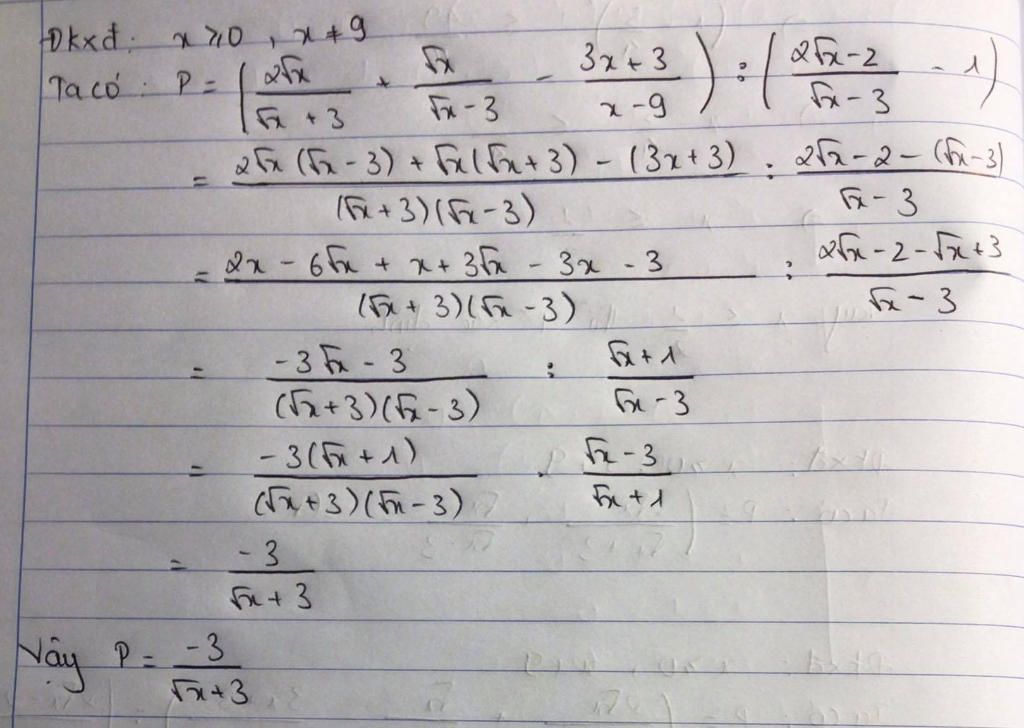 Đkxđ: x ≥ 0, x ≠ 9
Ta có: P = (2√x/(√x + 3) + √x/(√x - 3) - (3x + 3)/(x - 9)) : ((2√x - 2)/(√x - 3) - 1)
= (2√x(√x - 3) + √x(√x + 3) - (3x + 3))/((√x + 3)(√x - 3)) : (2√x - 2 - (√x - 3))/(√x - 3)
= (2x - 6√x + x + 3√x - 3x - 3)/((√x + 3)(√x - 3)) : (2√x - 2 - √x + 3)/(√x - 3)
= (-3√x - 3)/((√x + 3)(√x - 3)) : (√x + 1)/(√x - 3)
= (-3(√x + 1))/((√x + 3)(√x - 3)) . (√x - 3)/(√x + 1)
= -3/(√x + 3)
Vậy P = -3/(√x + 3)